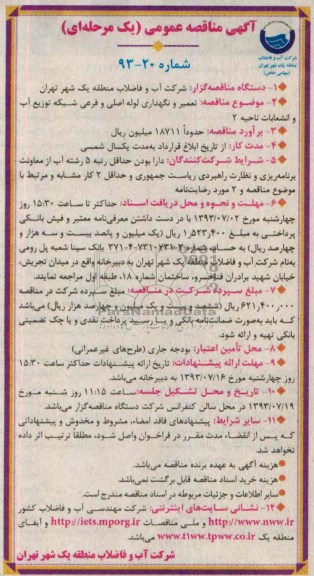 آگهی مناقصه عمومی (یک مرحله‌ای)
شماره ۲۰-۹۳
شرکت آب و فاضلاب
منطقه یک شهر تهران
(سهامی خاص)
۱- دستگاه مناقصه‌گزار: شرکت آب و فاضلاب منطقه یک شهر تهران
۲- موضوع مناقصه: تعمیر و نگهداری لوله اصلی و فرعی شبکه توزیع آب
و انشعابات ناحیه ۲
۳- برآورد مناقصه: حدوداً ۱۸۷۱۱ میلیون ریال
۴- مدت کار: از تاریخ ابلاغ قرارداد به‌مدت یکسال شمسی
۵- شرایط شرکت‌کنندگان: دارا بودن حداقل رتبه ۵ رشته آب از معاونت
برنامه‌ریزی و نظارت راهبردی ریاست جمهوری و حداقل ۲ کار مشابه و مرتبط با
موضوع مناقصه و ۲ مورد رضایت‌نامه
۶- مهلت و نحوه و محل دریافت اسناد: حداکثر تا ساعت ۱۵:۳۰ روز
چهارشنبه مورخ ۱۳۹۳/۰۷/۰۲ با در دست داشتن معرفی‌نامه معتبر و فیش بانکی
پرداختی به مبلغ ۱,۵۲۳,۴۰۰ ریال (یک میلیون و پانصد بیست و سه هزار و
چهارصد ریال) به حساب شماره ۲-۷۳۱۰۷۳۱-۴-۳۷۱ بانک سینا شعبه پل رومی
به‌نام شرکت آب و فاضلاب منطقه یک شهر تهران به دبیرخانه واقع در میدان تجریش،
خیابان شهید برادران فناخسرو، ساختمان شماره ۱۸، طبقه اول مراجعه نمایند.
۷- مبلغ سپرده شرکت در مناقصه: مبلغ سپرده شرکت در مناقصه
۶۲۱,۴۰۰,۰۰۰ ریال (ششصد و بیست و یک میلیون و چهارصد هزار ریال) می‌باشد
که باید به‌صورت ضمانت‌نامه بانکی و یا رسید پرداخت نقدی و یا چک تضمینی
بانکی تهیه و ارائه شود.
۸- محل تأمین اعتبار: بودجه جاری (طرح‌های غیرعمرانی)
۹- مهلت ارائه پیشنهادات: تاریخ ارائه پیشنهادات حداکثر ساعت ۱۵:۳۰
روز چهارشنبه مورخ ۱۳۹۳/۰۷/۱۶ به دبیرخانه می‌باشد.
۱۰- تاریخ و محل تشکیل جلسه: ساعت ۱۱:۱۵ روز شنبه مورخ
۱۳۹۳/۰۷/۱۹ در محل سالن کنفرانس شرکت دستگاه مناقصه‌گزار می‌باشد.
۱۱- سایر شرایط: پیشنهادهای فاقد امضاء، مشروط و مخدوش و پیشنهاداتی
که پس از انقضاء مدت مقرر در فراخوان واصل شود، مطلقاً ترتیب اثر داده
نخواهد شد.
هزینه آگهی به عهده برنده مناقصه می‌باشد.
هزینه خرید اسناد مناقصه قابل برگشت نمی‌باشد.
سایر اطلاعات و جزئیات مربوطه در اسناد مناقصه مندرج است.
۱۲- نشانی سایت‌های اینترنتی: شرکت مهندسی آب و فاضلاب کشور
http://www.nww.ir و ملی مناقصات http://iets.mporg.ir و آبفای
منطقه یک www.t1ww.tpww.co.ir می‌باشد.
شرکت آب و فاضلاب منطقه یک شهر تهران